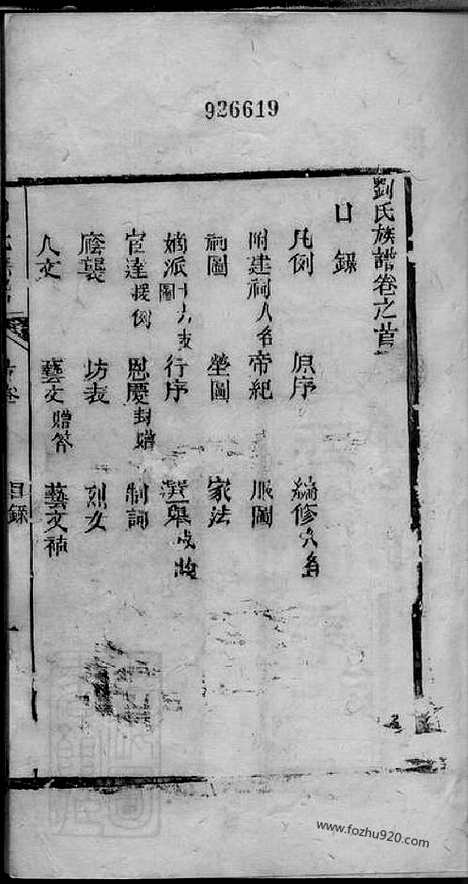 926619
劉氏族譜卷之首
目錄
凡例 原序 編修人名
附建祠人名 帝紀 服圖
祠圖 塋圖 家法
嫡派圖 行序 選舉
宦達援例 恩慶封贈 制詞
廕襲 坊表 列女
人文 藝文贈答 藝文補
首卷 目錄 一
www.fozhu920.com